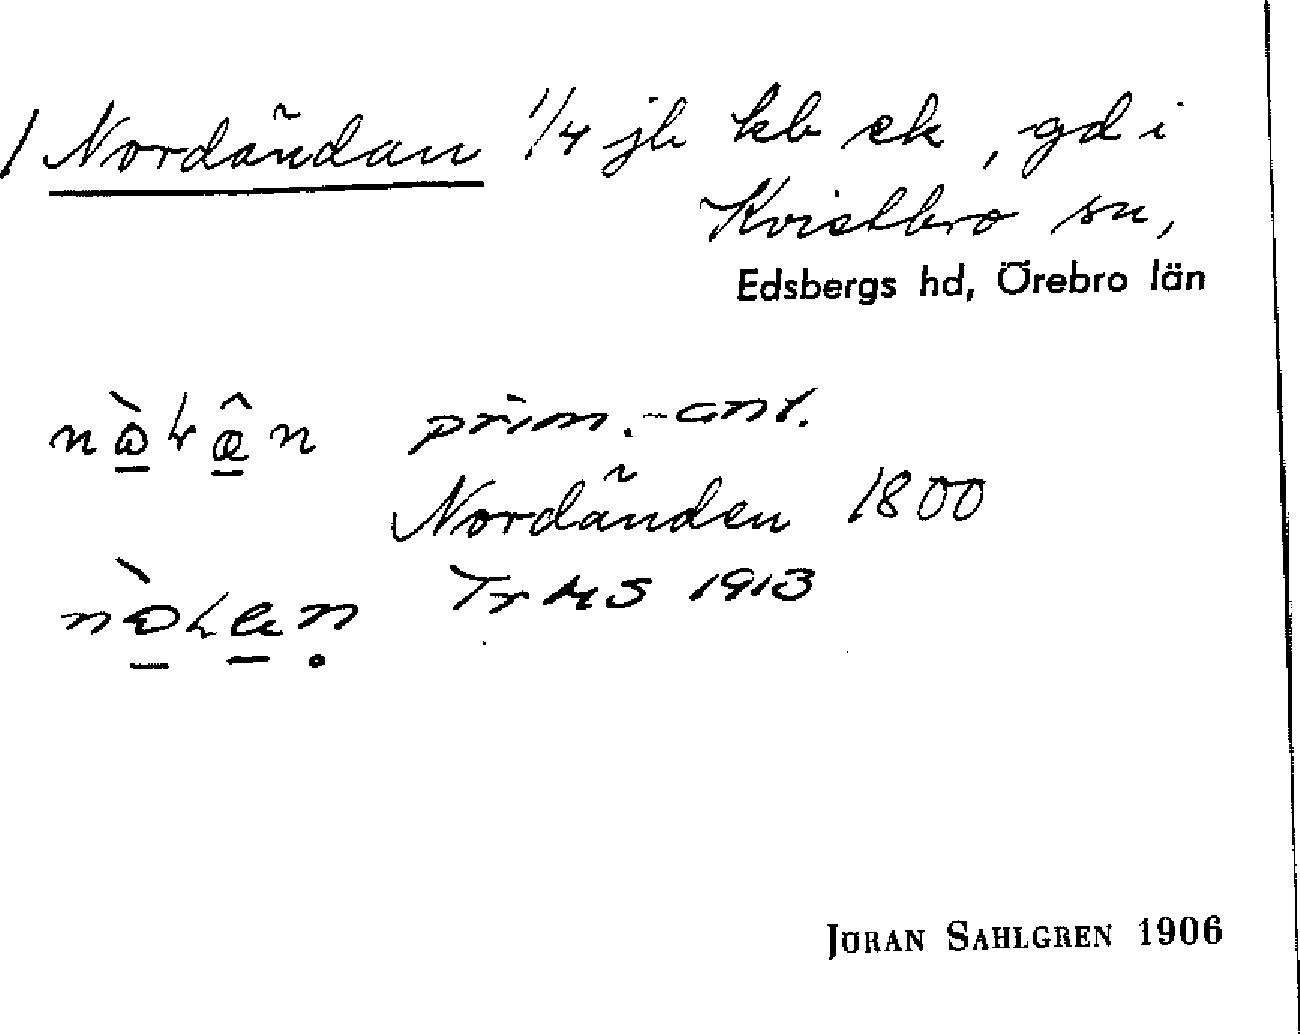 1 Nordändan 1/4 jb kb sk, gd i
Kvistbro sn,
Edsbergs hd, Örebro län
prim.-ant.
Nordänden 1800
1913
JÖRAN SAHLGREN 1906